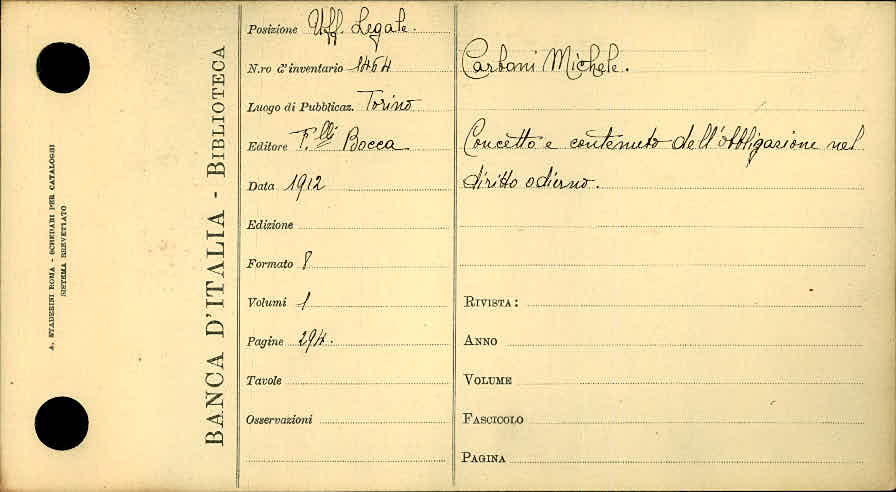 A. STADERINI ROMA - SCHEDARI PER CATALOGHI
SISTEMA BREVETTATO
BANCA D'ITALIA - BIBLIOTECA
Posizione Uff. Legale.
N.ro d'inventario 1464
Luogo di Pubblicaz. Torino
Editore F.lli Bocca
Data 1912
Edizione
Formato 8
Volumi 1
Pagine 294.
Tavole
Osservazioni
Carboni Michele.
Concetto e contenuto dell'obbligazione nel
diritto odierno.
RIVISTA:
ANNO
VOLUME
FASCICOLO
PAGINA